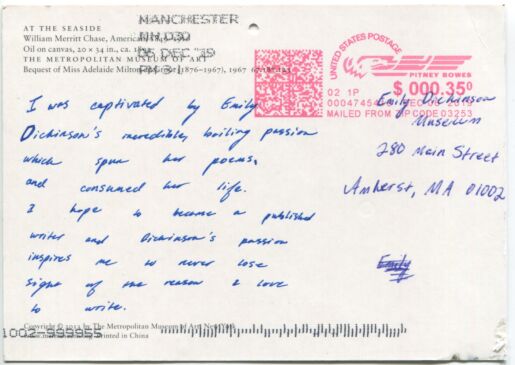 AT THE SEASIDE
William Merritt Chase, American,
Oil on canvas, 20 × 34 in., ca.
THE METROPOLITAN MUSEUM OF ART
Bequest of Miss Adelaide Milton (1876–1967), 1967
MANCHESTER
NH 030
06 DEC '19
PM 3 L
UNITED STATES POSTAGE
PITNEY BOWES
02 1P
$ 000.35⁰
MAILED FROM ZIP CODE 03253
I was captivated by Emily
Dickinson's incredible, boiling passion
which spun her poems,
and consumed her life.
I hope to become a published
writer and Dickinson's passion
inspires me to never lose
sight of the reason I love
to write.
Emily Dickinson
Museum
280 Main Street
Amherst, MA 01002
Emily
Copyright © The Metropolitan Museum of Art, New York
Printed in China
1002-999955